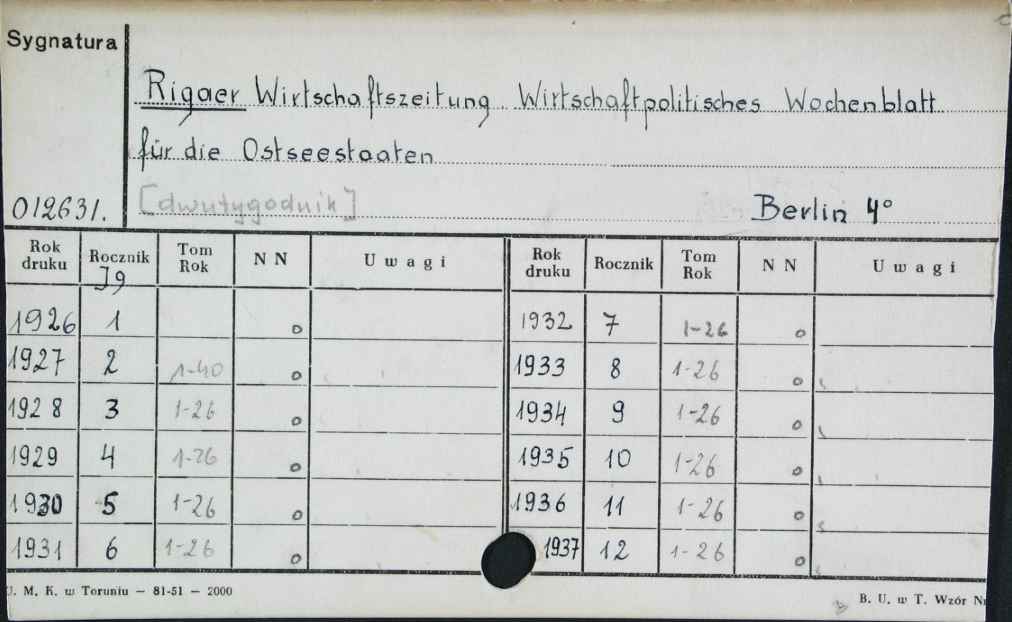 Sygnatura
Rigaer Wirtschaftszeitung Wirtschaftpolitisches Wochenblatt
für die Ostseestaaten
012631. [dwutygodnik] Berlin 4°
Rok druku Rocznik Tom Rok N N Uwagi Rok druku Rocznik Tom Rok N N Uwagi
Jg
1926 1 o 1932 7 1-26 o
1927 2 1-40 o 1933 8 1-26 o
1928 3 1-26 o 1934 9 1-26 o
1929 4 1-26 o 1935 10 1-26 o
1930 5 1-26 o 1936 11 1-26 o
1931 6 1-26 o 1937 12 1-26 o
U. M. K. w Toruniu — 81-51 — 2000 B. U. w T. Wzór Nr